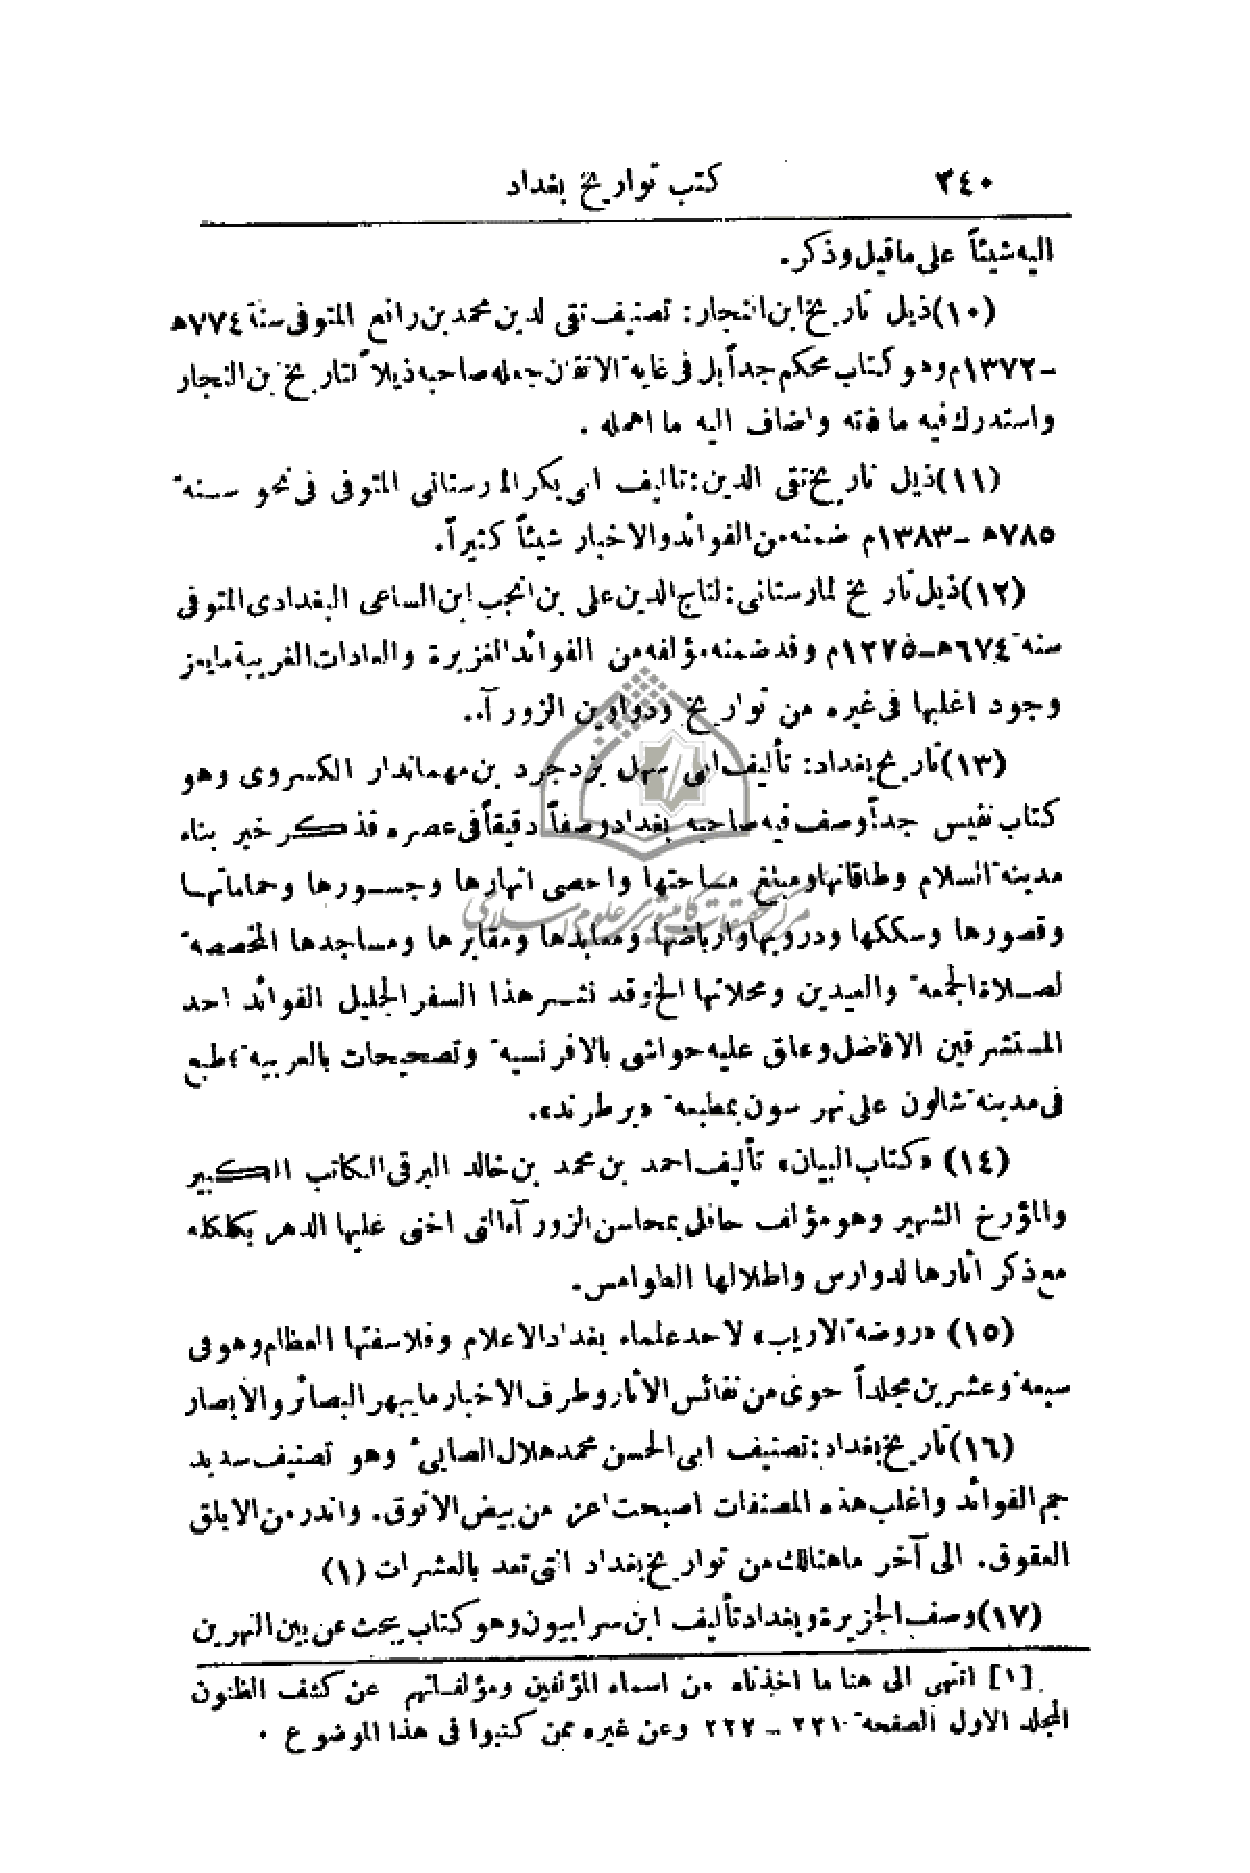 ٣٤٠ كتب تواريخ بغداد
اليه شيئاً على ماقيل وذكر.
(١٠) ذيل تاريخ ابن النجار: تصنيف تقي الدين محمد بن رافع المتوفى سنة ٧٧٤ه
ـ ١٣٧٢م وهو كتاب محكم جداً بل في غاية الاتقان جعله صاحبه ذيلاً لتاريخ بن النجار
واستدرك فيه ما فاته واضاف اليه ما اهمله .
(١١) ذيل تاريخ تقي الدين: تاليف ابي بكر المارستاني المتوفى في نحو سنة
٧٨٥ه ـ ١٣٨٣م ضمنه من الفوائد والاخبار شيئاً كثيراً.
(١٢) ذيل تاريخ المارستاني: لتاج الدين علي بن انجب ابن الساعي البغدادي المتوفى
سنة ٦٧٤ه ـ ١٢٧٥م وقد ضمنه مؤلفه من الفوائد الغزيرة والعادات الغريبة مايعز
وجود اغلبها في غيره من تواريخ ودواوين الزورآ..
(١٣) تاريخ بغداد: تأليف ابي سهل يزدجرد بن مهماندار الكسروي وهو
كتاب نفيس جداً وصف فيه صاحبه بغداد وصفاً دقيقاً في عصره فذكر خبر بناء
مدينة السلام وطاقاتها ومبلغ مساحتها واحصى انهارها وجسورها وحماماتها
وقصورها وسككها ودروبها وارباضها ومعابدها ومقابرها ومساجدها المخصصة
لصلاة الجمعة والعيدين ومحلاتها الخ وقد نشر هذا السفر الجليل الفوائد احد
المستشرقين الافاضل وعلق عليه حواشي بالافرنسية وتصحيحات بالعربية ؛ طبع
في مدينة شالون على نهر سون بمطبعة «برطرند».
(١٤) «كتاب البيان» تأليف احمد بن محمد بن خالد البرقي الكاتب الكبير
والمؤرخ الشهير وهو مؤلف حافل بمحاسن الزورآء التي اخنى عليها الدهر بكلكله
مع ذكر اثارها الدوارس واطلالها الطوامس.
(١٥) «روضة الاريب» لاحد علماء بغداد الاعلام وفلاسفتها العظام وهو في
سبعة وعشرين مجلداً حوى من نفائس الاثار وطرف الاخبار مايبهر البصائر والابصار
(١٦) تاريخ بغداد: تصنيف ابي الحسن محمد هلال الصابيء وهو تصنيف سديد
جم الفوائد واغلب هذه المصنفات اصبحت اعز من بيض الانوق. واندر من الابلق
العقوق. الى آخر ماهنالك من تواريخ بغداد التي تعد بالعشرات (١)
(١٧) وصف الجزيرة وبغداد تأليف ابن سرابيون وهو كتاب يبحث عن بين النهرين
[١] انتهى الى هنا ما اخذناه من اسماء المؤلفين ومؤلفاتهم عن كشف الظنون
المجلد الاول الصفحة ٢٢١ ـ ٢٢٢ وعن غيره ممن كتبوا في هذا الموضوع .
مركز تحقيقات كامپيوتری علوم اسلامی